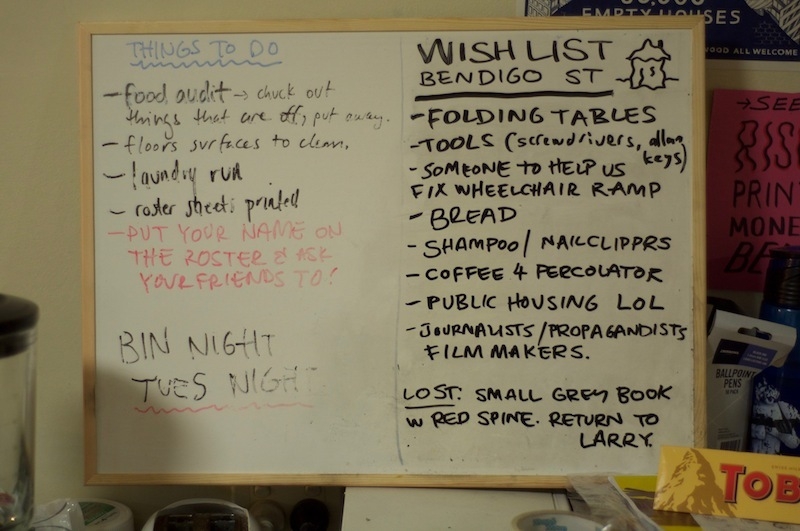 THINGS TO DO
- food audit → chuck out
things that are off, put away.
- floors surfaces to clean.
- laundry run
- roster sheets printed
- PUT YOUR NAME ON
THE ROSTER & ASK
YOUR FRIENDS TO!
BIN NIGHT
TUES NIGHT
WISH LIST
BENDIGO ST
- FOLDING TABLES
- TOOLS (screwdrivers, allan
keys)
- SOMEONE TO HELP US
FIX WHEELCHAIR RAMP
- BREAD
- SHAMPOO / NAILCLIPPRS
- COFFEE 4 PERCOLATOR
- PUBLIC HOUSING LOL
- JOURNALISTS/PROPAGANDISTS
FILM MAKERS.
LOST: SMALL GREY BOOK
W RED SPINE. RETURN TO
LARRY.
EMPTY HOUSES
ALL WELCOME
→ SEE
RISO
PRIN
MONE
BE
BALLPOINT
PENS
TOB